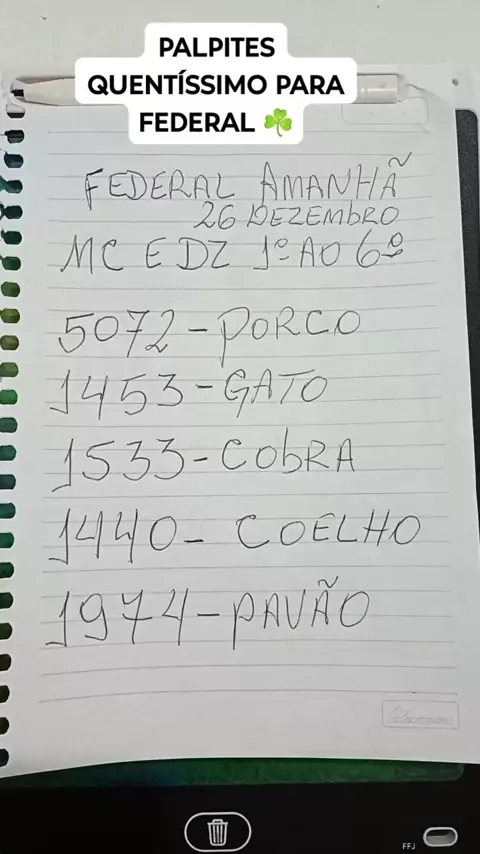 PALPITES
QUENTÍSSIMO PARA
FEDERAL ☘️
FEDERAL AMANHÃ
26 DEZEMBRO
MC E DZ 1º AO 6º
5072-PORCO
1453-GATO
1533-CObRA
1440-COELHO
1974-PAVÃO
FFJ